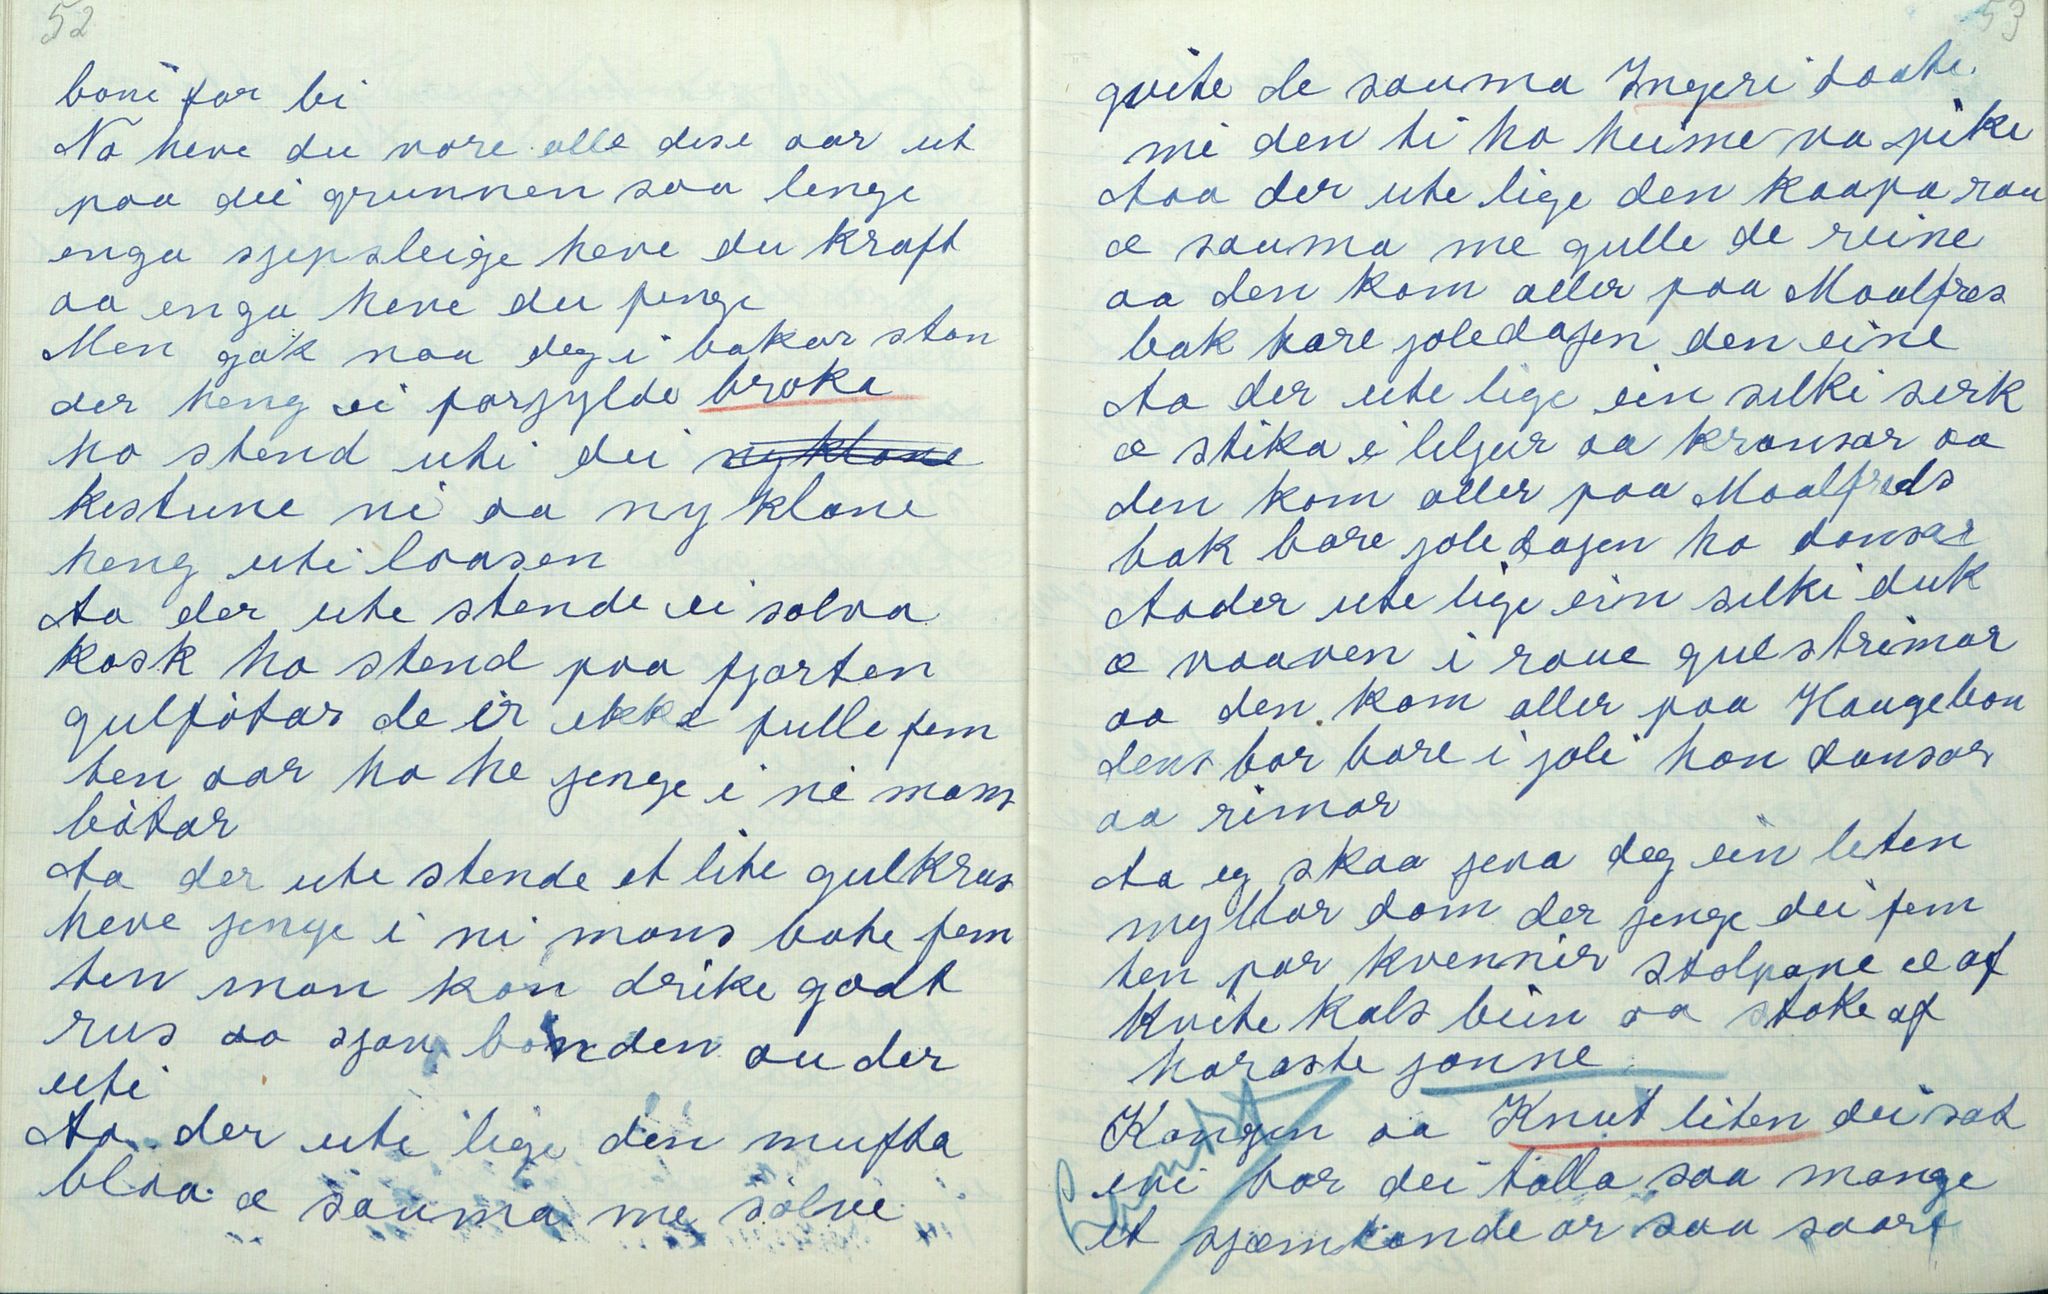 52
boni for bi
No heve du vore alle dese aar ut
paa dei grunnen saa lenge
enga sjepsleige heve du kraft
aa enga heve du penge
Men gak naa deg i bakar stan
der heng ei forjylde broka
ho stend uti dei nyklane
kestune ni aa nyklane
heng uti laasen
Aa der ute stende ei solva
kask ho stend paa fjorten
gulfòtar de ir ikke fulle fem
ten aar ho he jenge i ni mans
bòtar
Aa der ute stende et lite gulkrus
heve jenge i ni mans bote fem
ten man kan drike godt
rus aa sjav bonden au der
uti
Aa der ute lige den mufta
blaa æ sauma me sölve
53
qvite de sauma Ingeri daate
mi den ti ho heime va pike
Aaa der ute lige den kaapa rau
æ sauma me gulle de reine
aa den kom aller paa Maalfres
bak bare joledajen den eine
Aa der ute lige ein silki serk
æ stika i liljur aa kransar aa
den kom aller paa Maalfreds
bak bare joledajen ho dansar
Aader ute lige ein silki duk
æ vaaven i raue gulstrimar
aa den kom aller paa Haugebon
dens bar bare i joli han dansar
aa rimar
Aa eg skaa jeva deg ein liten
myllar dom der jenge dei fem
ten par kvennir stolpane æ af
kvite kals bein aa stoke af
haraste jonne
Kongen aa Knut liten dei sat
ivi bor dei talla saa mange
et sjæmtande or saa saart